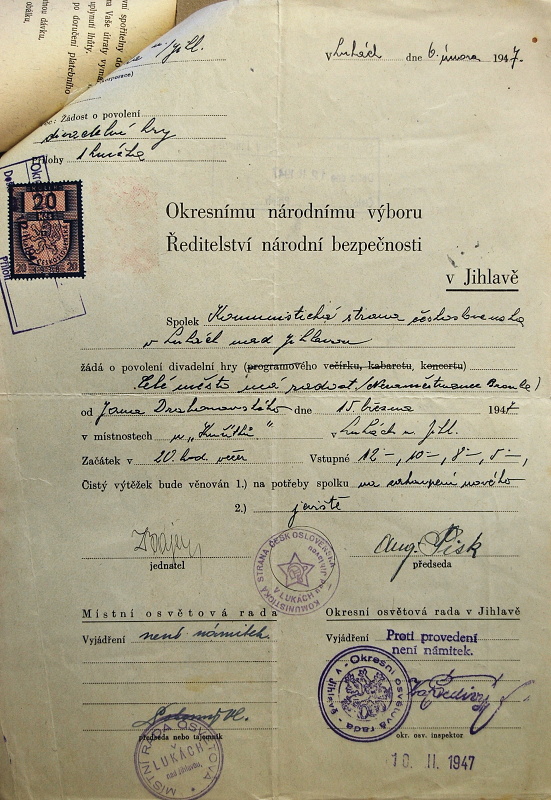 vní spořitelny do
na Vaše útraty vyma
uplynutí lhůty.
po doručení platebního
nou dávku,
v Lukách dne 6. února 1947.
n/Jihl.
Věc: Žádost o povolení
divadelní hry
Přílohy
20
20 20
Okresnímu národnímu výboru
Ředitelství národní bezpečnosti
v Jihlavě
Spolek Komunistická strana československa
v Lukách nad Jihlavou
žádá o povolení divadelní hry (programového večírku, kabaretu, koncertu)
Celé město má radost
od Jana Drahonovského dne 15 března 1947
v místnostech u v Lukách n. Jihl.
Začátek v 20. hod. večer Vstupné 12-, 10-, 8-, 5-,
Čistý výtěžek bude věnován 1.) na potřeby spolku na zakoupení nového
2.) jeviště
jednatel
Aug. Písk
předseda
KOMUNISTICKÁ STRANA ČESKOSLOVENSKA
V LUKÁCH NAD JIHLAVOU
Místní osvětová rada
Vyjádření není námitek.
předseda nebo tajomník
MÍSTNÍ RADA OSVĚTOVÁ
V LUKÁCH
nad Jihlavou
Okresní osvětová rada v Jihlavě
Vyjádření Proti provedení
není námitek.
Okresní osvětová rada v Jihlavě
okr. osv. inspektor
10. II. 1947